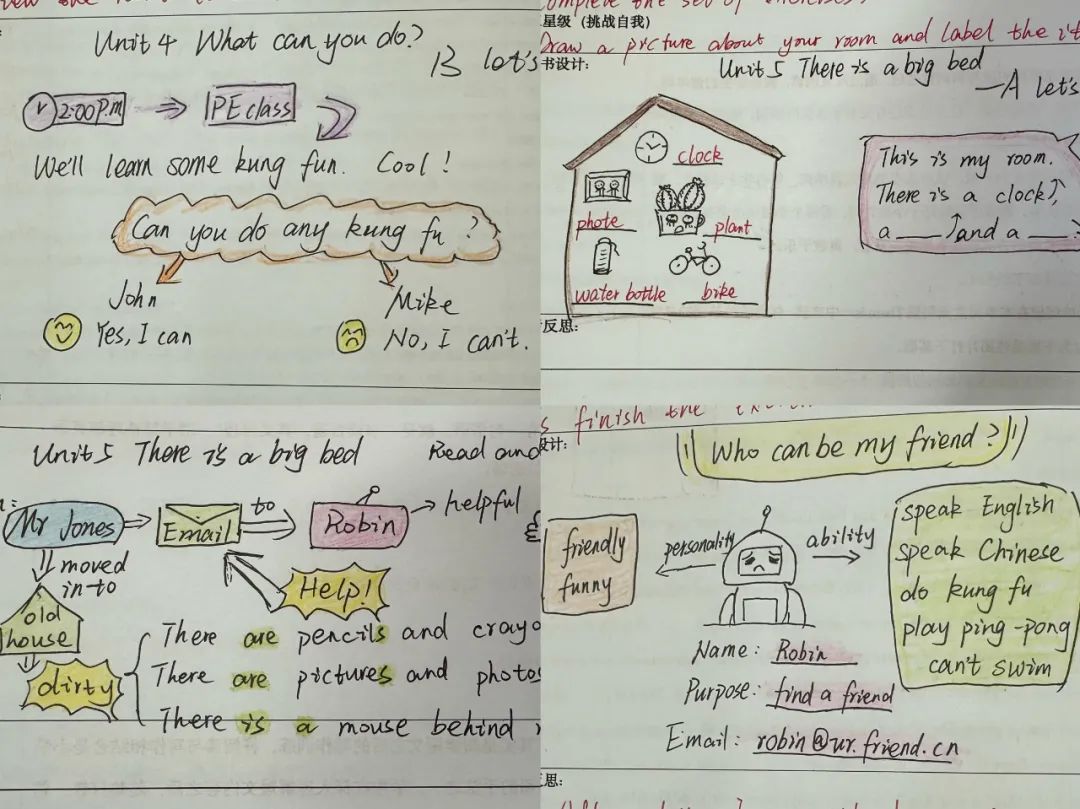 Unit 4 What can you do?
B let's
2:00P.m
PE class
We'll learn some kung fun. Cool!
Can you do any kung fu ?
John
Mike
Yes, I can
No, I can't.
星级（挑战自我）
Draw a picture about your room and label the it
书设计:
Unit 5 There is a big bed
—A let's
clock
phote
plant
water bottle
bike
This is my room.
There is a clock,
a ____, and a ____.
反思:
Unit 5 There is a big bed
Read and
Mr Jones
Email
to
Robin
helpful
moved
in-to
Help!
old
house
dirty
There are pencils and crayo
There are pictures and photos
There is a mouse behind
finish the
设计:
Who can be my friend?
friendly
funny
personality
ability
speak English
speak Chinese
do kung fu
play ping-pong
can't swim
Name: Robin
Purpose: find a friend
Email: robin@ur.friend.cn
思: